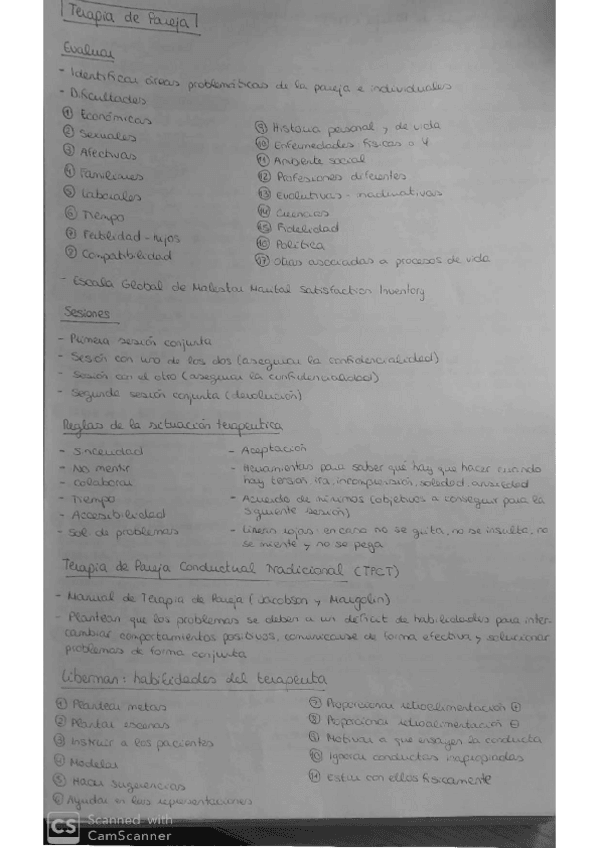 Terapia de Pareja
Evaluar
- Identificar áreas problemáticas de la pareja e individuales
- Dificultades
① Económicas
② Sexuales
③ Afectivas
④ Familiares
⑤ Laborales
⑥ Tiempo
⑦ Fertilidad - hijos
⑧ Compatibilidad
⑨ Historia personal y de vida
⑩ Enfermedades físicas o Ψ
⑪ Ambiente social
⑫ Profesiones diferentes
⑬ Evolutivas - madurativas
⑭ Creencias
⑮ Fidelidad
⑯ Política
⑰ Otras asociadas a procesos de vida
- Escala Global de Malestar Marital Satisfaction Inventory
Sesiones
- Primera sesión conjunta
- Sesión con uno de los dos (asegurar la confidencialidad)
- Sesión con el otro (asegurar la confidencialidad)
- Segunda sesión conjunta (devolución)
Reglas de la situación terapéutica
- Sinceridad
- No mentir
- Colaborar
- Tiempo
- Accesibilidad
- Sol de problemas
- Aceptación
- Herramientas para saber qué hay que hacer cuando
hay tensión, ira, incomprensión, soledad, ansiedad
- Acuerdo de mínimos (objetivos a conseguir para la
siguiente sesión)
- Líneas rojas: en casa no se grita, no se insulta, no
se miente y no se pega
Terapia de Pareja Conductual Tradicional (TPCT)
- Manual de Terapia de Pareja (Jacobson y Margolin)
- Plantean que los problemas se deben a un déficit de habilidades para inter-
cambiar comportamientos positivos, comunicarse de forma efectiva y solucionar
problemas de forma conjunta
Liberman: habilidades del terapeuta
① Plantear metas
② Plantar escenas
③ Instruir a los pacientes
④ Modelar
⑤ Hacer sugerencias
⑥ Ayudar en las representaciones
⑦ Proporcionar retroalimentación ⊕
⑧ Proporcionar retroalimentación ⊖
⑨ Motivar a que ensayen la conducta
⑩ Ignorar conductas inapropiadas
⑪ Estar con ellos físicamente
CS Scanned with
CamScanner